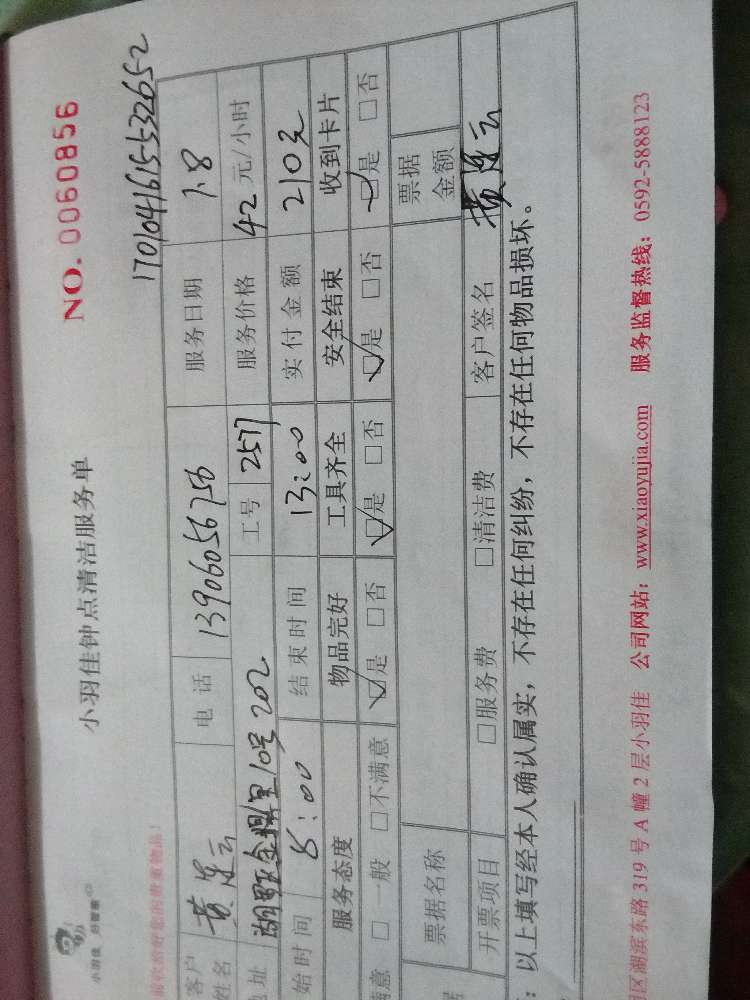 小羽佳 好管家
小羽佳钟点清洁服务单
NO. 0060856
请收拾好您的贵重物品!
170104161553 2652
客户姓名 黄莲云 电话 13906056756 服务日期 1.8
地址 湖里金鼎里10号202 工号 2577 服务价格 42元/小时
始时间 8:00 结束时间 13:00 实付金额 210元
服务态度 物品完好 工具齐全 安全结束 收到卡片
满意 □一般 □不满意 ☑是 □否 ☑是 □否 ☑是 □否 ☑是 □否
票据名称 票据金额
开票项目 □服务费 □清洁费 客户签名 黄莲云
:以上填写经本人确认属实,不存在任何纠纷,不存在任何物品损坏。
区湖滨东路 319 号 A 幢 2 层小羽佳 公司网站:www.xiaoyujia.com 服务监督热线:0592-5888123